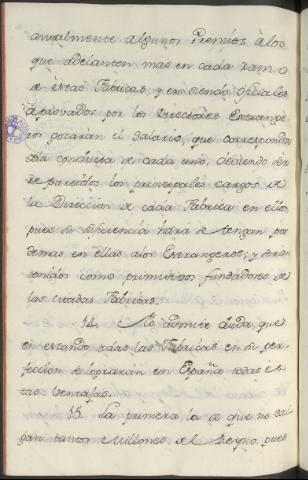 anualmente algunos Premios àlos
que adelanten mas en cada ramo
de estas Fabricas, y en siendo oficiales
aprovados por los Directores Extrange
ros gozarán el salario, que corresponda
à la conducta de cada uno, debiendo ser
repartidos los principales cargos de
la Dirección de cada Fabrica en ellos,
pues su suficiencia hará se tengan por
demas en ellas alos Extrangeros; y serán
tenidos como primitivos fundadores de
las citadas Fabricas.
14. No admite duda, que
en estando todas las Fabricas en su per-
feccion se lograrán en España todas es-
tas ventajas.
15. La primera la de que no sal-
gan tantos Millones del Reyno, pues